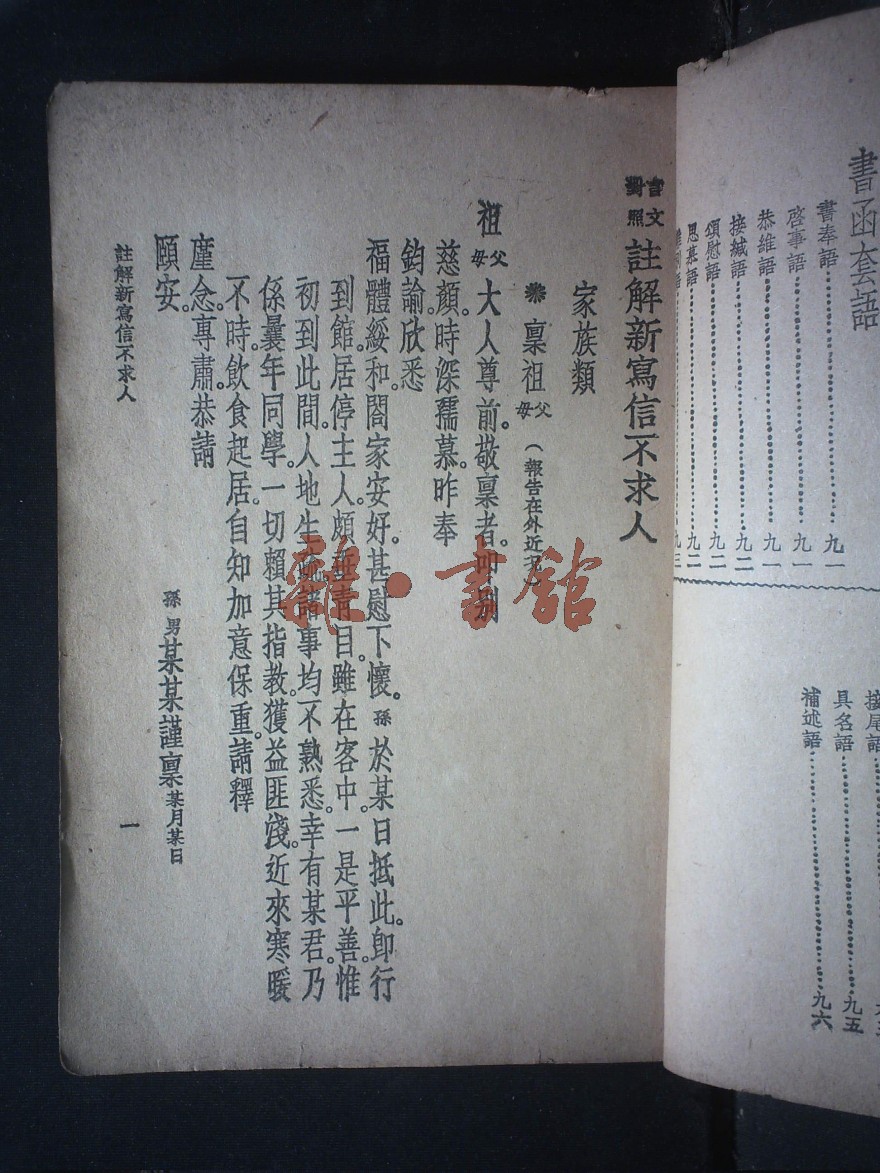 書函套語
書奉語 九一
啓事語 九一
恭維語 九一
接緘語 九二
頌慰語 九二
思慕語 九二
語 九三
具名語 九五
補述語 九六
言文對照 註解新寫信不求人
家族類
稟祖父母 (報告在外近况)
祖父母大人尊前。敬禀者。叩別
慈顏。時深孺慕。昨奉
鈞諭。欣悉
福體綏和。閤家安好。甚慰下懷。孫於某日抵此。卽行
到館。居停主人。頗垂青目。雖在客中。一是平善。惟
初到此間。人地生疏。諸事均不熟悉。幸有某君。乃
係曩年同學。一切賴其指教。獲益匪淺。近來寒暖
不時。飲食起居。自知加意保重。請釋
廑念。專肅。恭請
頤安。
孫男某某謹禀 某月某日
註解新寫信不求人
一
雜·書館